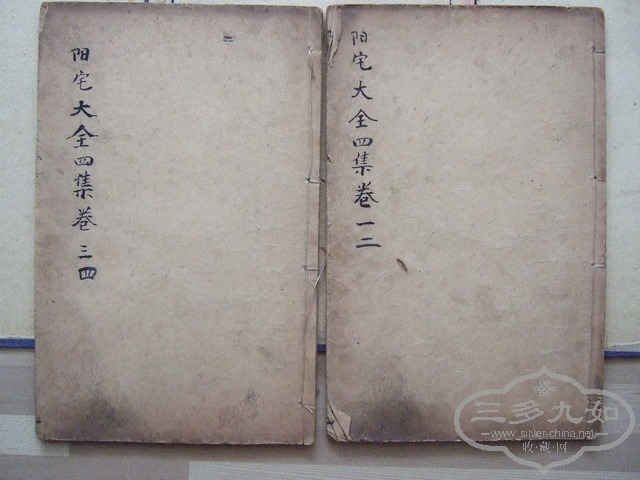 阳宅大全四集卷三四
阳宅大全四集卷一二
三多九如
www.silver-china.net
收·藏·网